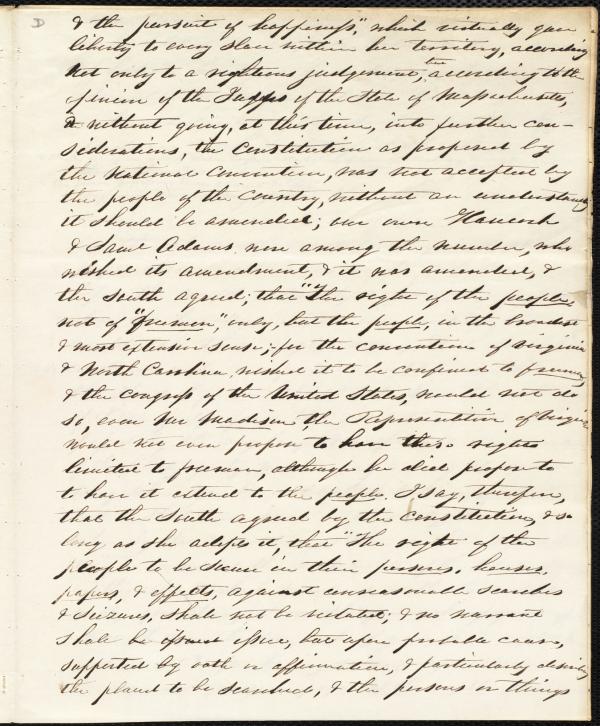 D
& the pursuit of happiness," which virtually gave
liberty to every slave within her territory, according
not only to a righteous judgement, but according to the
opinion of the Judges of the State of Massachusetts,
& without going, at this time, into further con-
siderations, the Constitution as proposed by
the National Convention, was not accepted by
the people of the Country, without an understanding
it should be amended; our own Hancock
& Saml Adams were among the number, who
wished its amendment, & it was amended, &
the South agreed; that "The right of the people,
not of "freemen", only, but the people, in the broadest
& most extensive sense; for the conventions of Virginia
& North Carolina wished it to be confined to freemen,
& the congress of the United States, would not do
so, even Mr Madison, the Representative of Virginia
would not even propose to have these rights
limited to freemen, although he did propose to
to have it extend to the people. I say, therefore,
that the South agreed by the Constitution, & so
long as she adopts it, that "The right of the
people to be secure in their persons, houses,
papers, & effects, against unreasonable searches
& seizures, shall not be violated; & no warrant
shall be issue, but upon probable cause,
supported by oath or affirmation, & particularly describing
the placed to be searched, & the persons or things